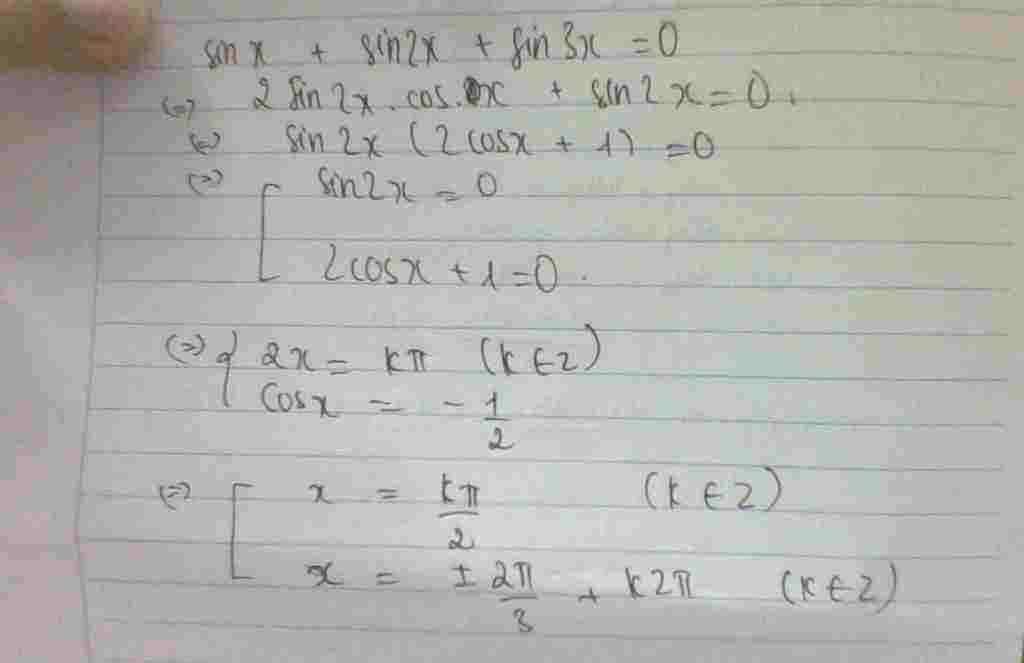 sin x + sin2x + sin 3x = 0
(=) 2 sin 2x . cos . x + sin 2x = 0 .
(=) sin 2x (2cosx + 1) = 0
(=) [ sin2x = 0
2cosx + 1 = 0 .
(=) { 2x = kπ (k ∈ z)
cosx = - 1/2
(=) [ x = kπ/2 (k ∈ z)
x = ± 2π/3 + k2π (k ∈ z)